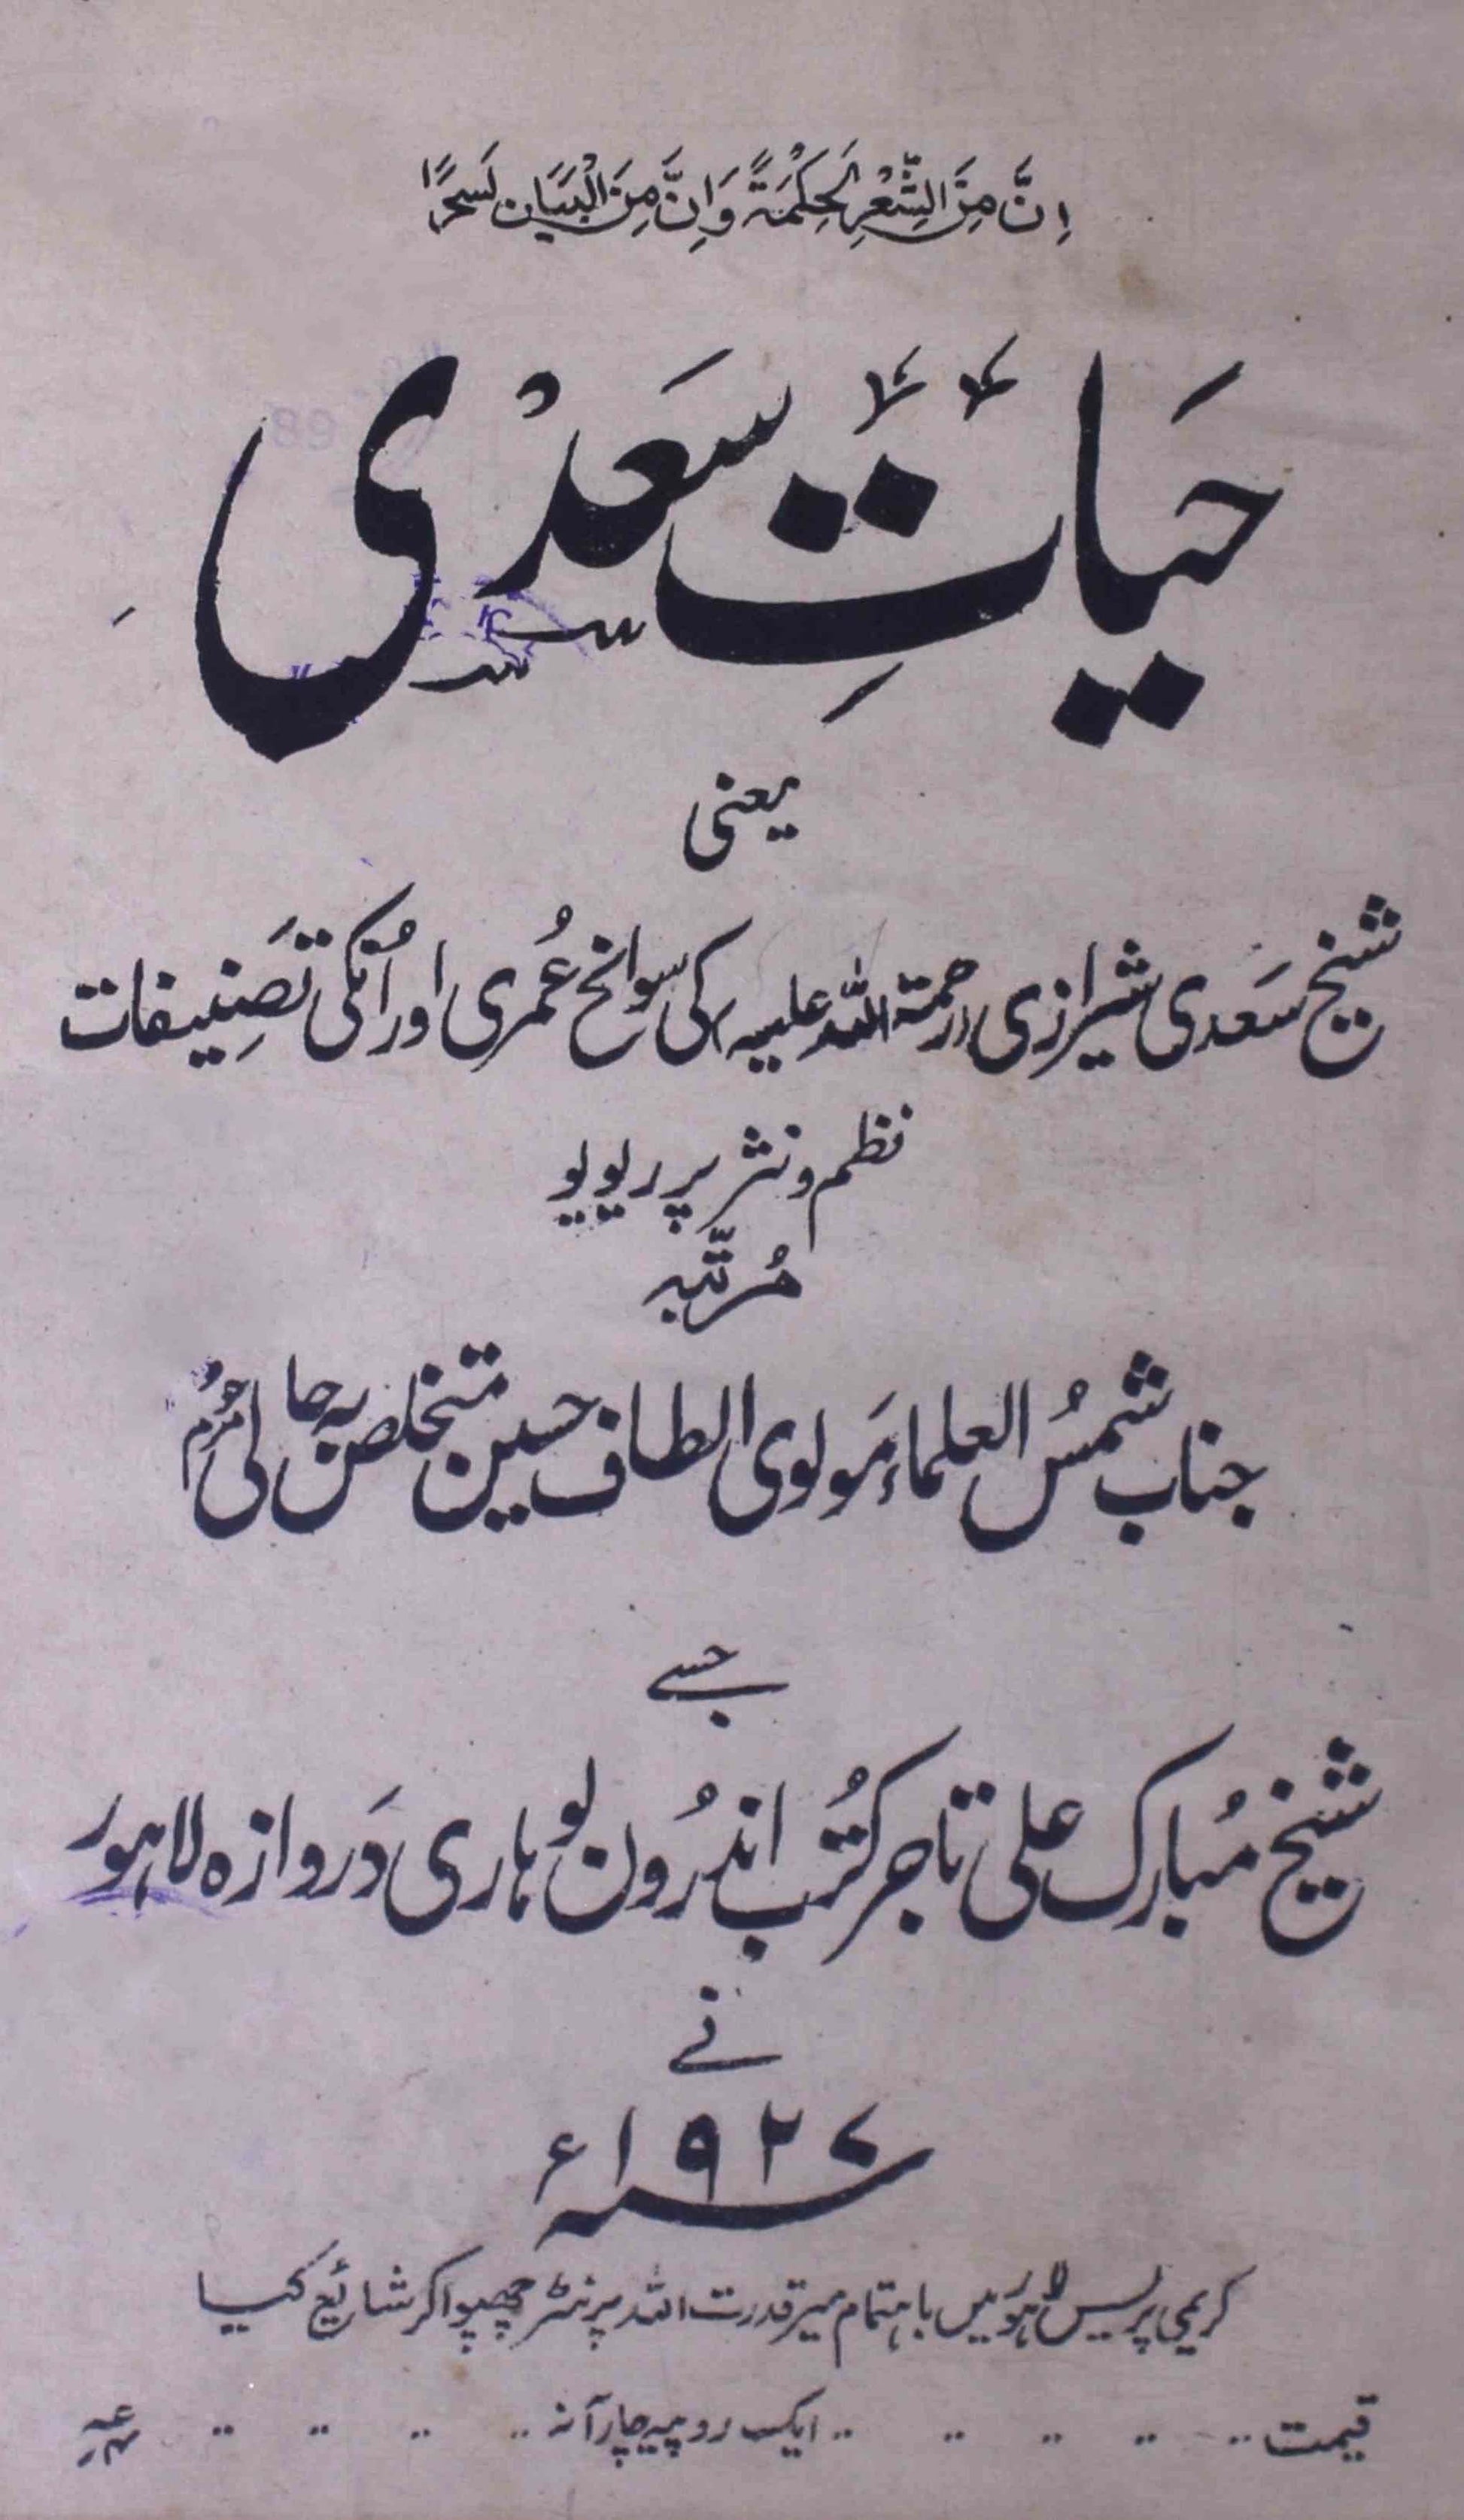 اِنَّ مِنَ الشِّعْرِ لَحِكْمَةً وَاِنَّ مِنَ الْبَيَانِ لَسِحْرًا
حَیاتِ سَعْدی
یعنی
شیخ سَعدی شیرازی (رحمتہ اللہ علیہ) کی سوانح عُمری اور اُنکی تَصنِیفات
نظم و نثر پر ریویو
مُرتّبہ
جناب شمسُ العلماء مَولوی الطاف حسین متخلص بہ حالی مرحُوم
جسے
شیخ مُبارک علی تاجر کتُب اندرُون لوہاری دَروازہ لاہور
نے
۱۹۲۷ء
کریمی پریس لاہور میں باہتمام میر قدرت اللہ پرنٹر چھپوا کر شائع کیا
قیمت .. .. .. .. .. ایک روپیہ چار آنہ .. .. .. ..